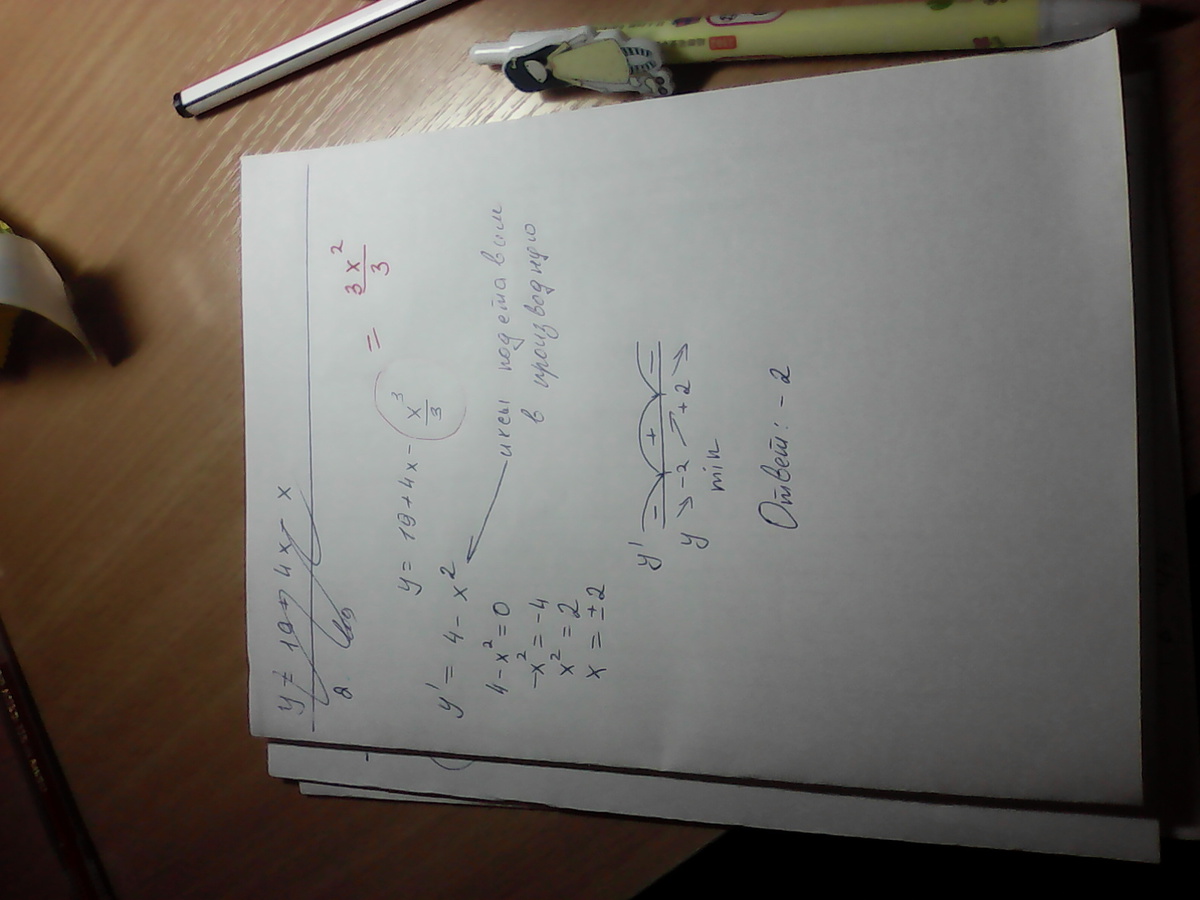 y = 19 + 4x - x
y = 19 + 4x - x³/3 = 3x²/3
y' = 4 - x²
иксы подставим
в производную
4 - x² = 0
-x² = -4
x² = 2
x = ±2
y' - + -
y -2 +2
min
Ответ: -2